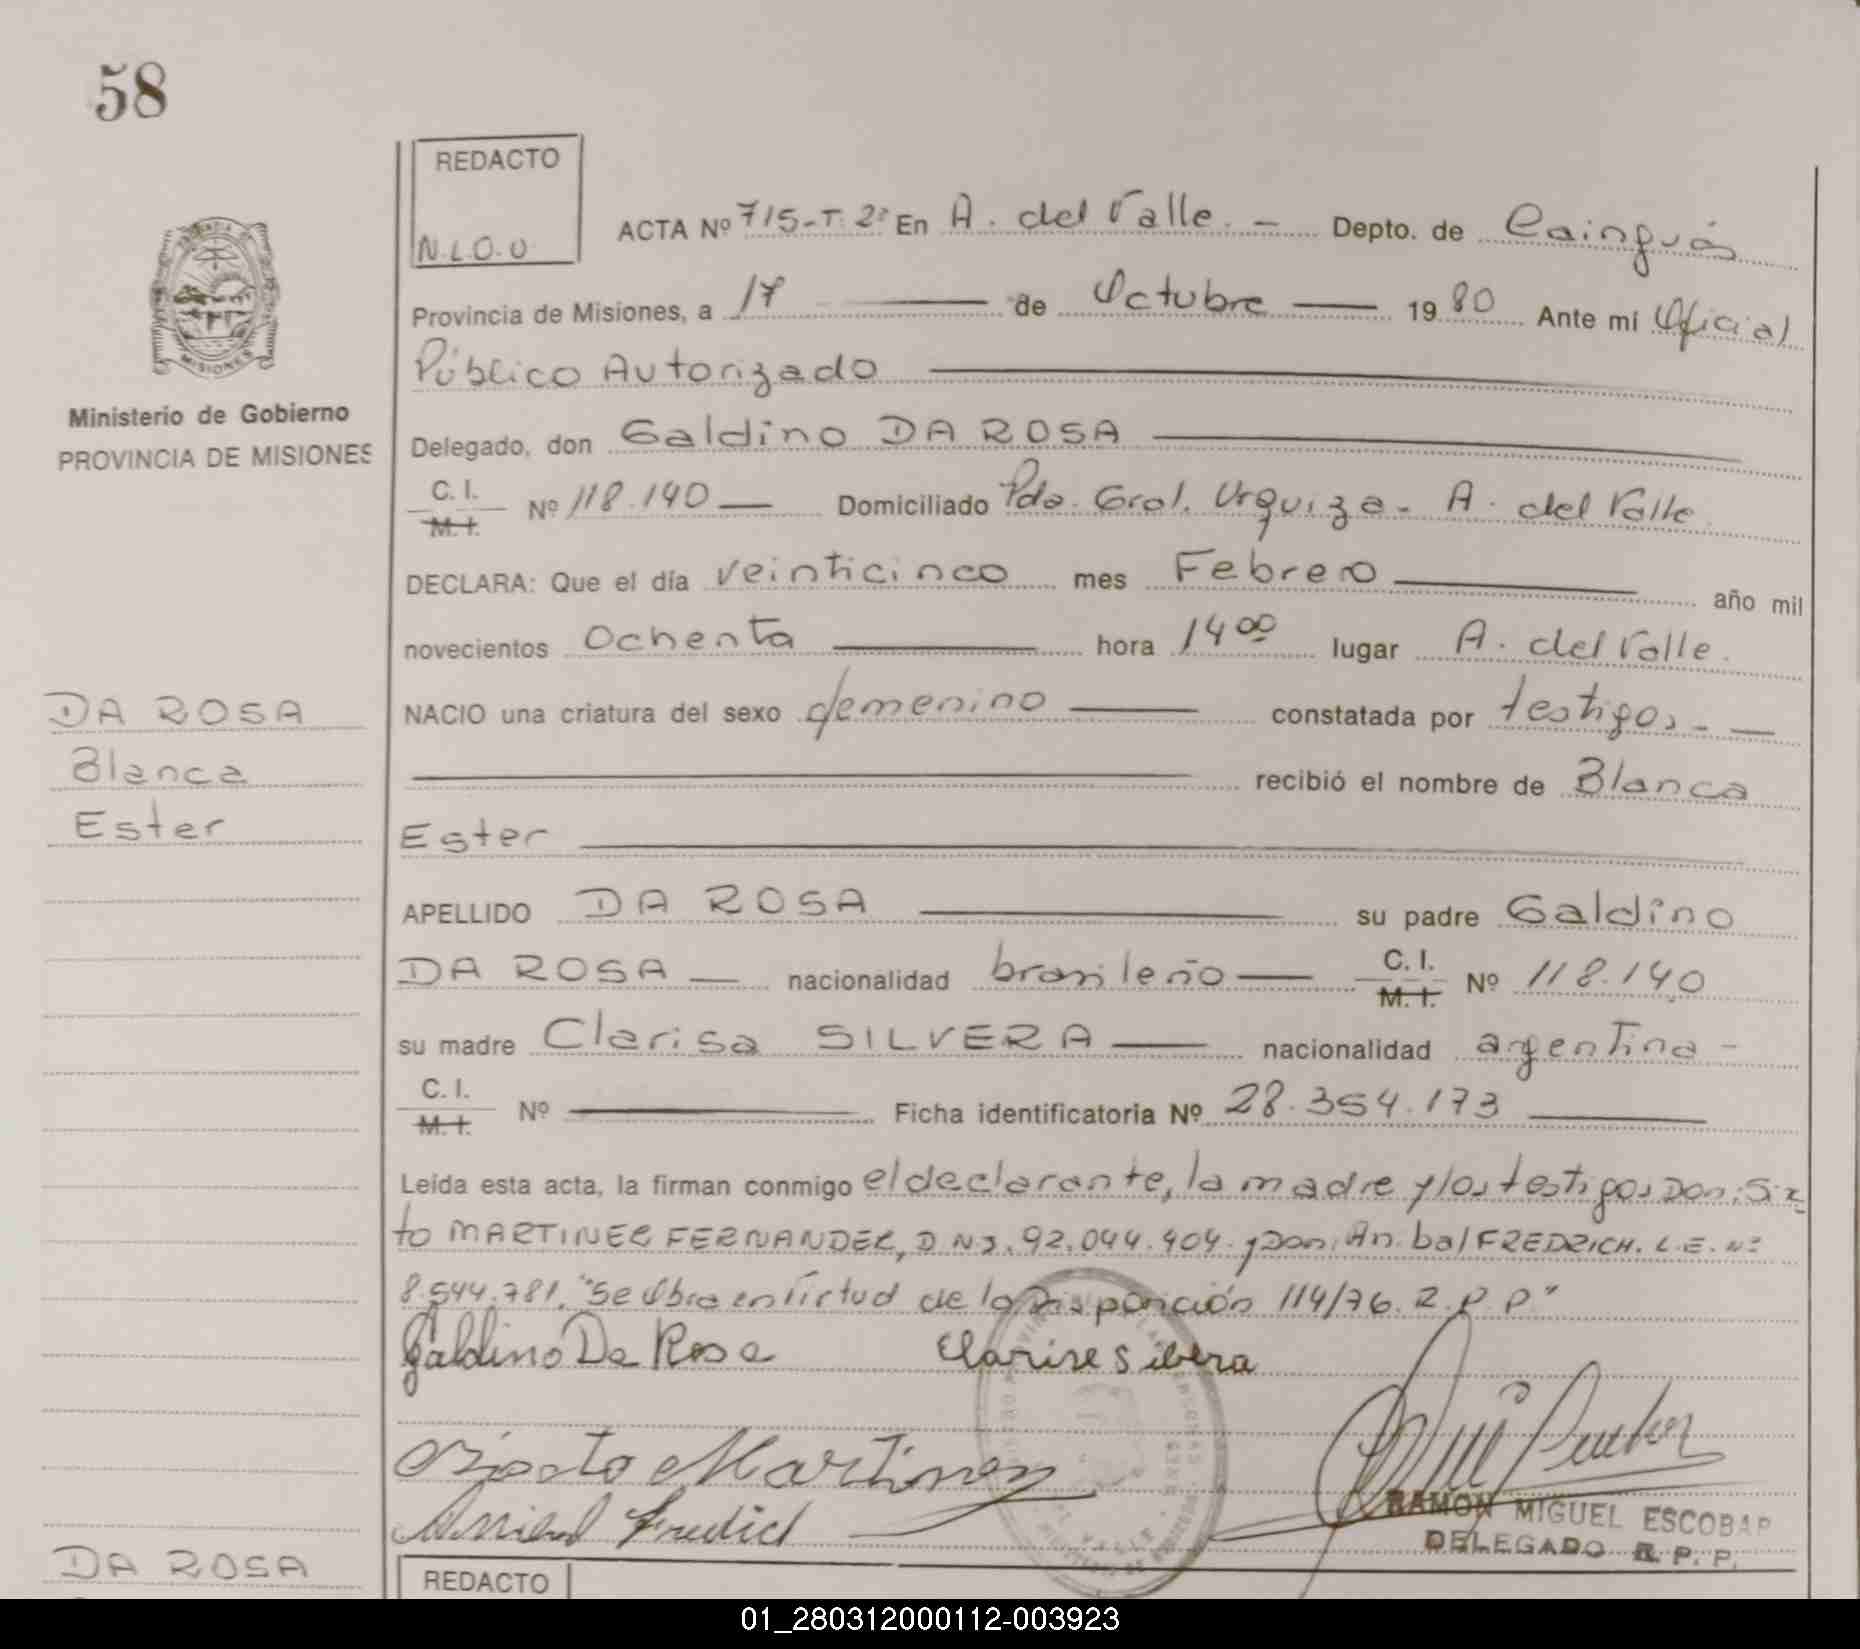 58
REDACTO
N.L.O.U
ACTA Nº 715-T. 2º En A. del Valle. - Depto. de Cainguás
Provincia de Misiones, a 17 de Octubre 1980 Ante mi Oficial
Público Autorizado
Ministerio de Gobierno
PROVINCIA DE MISIONES
Delegado, don Galdino DA ROSA
C. I.
M. I. Nº 118.140 Domiciliado Pda. Gral. Urquiza - A. del Valle
DECLARA: Que el día veinticinco mes Febrero año mil
novecientos Ochenta hora 14 00 lugar A. del Valle.
DA ROSA
Blanca
Ester
NACIO una criatura del sexo femenino constatada por testigos. -
recibió el nombre de Blanca
Ester
APELLIDO DA ROSA su padre Galdino
DA ROSA nacionalidad brasileño C. I. M. I. Nº 118.140
su madre Clarisa SILVERA nacionalidad argentina -
C. I.
M. I. Nº Ficha identificatoria Nº 28.354.173
Leída esta acta, la firman conmigo el declarante, la madre y los testigos Don: Six
to MARTINEZ FERNANDEZ, D N I. 92.044.404. y Don: Anibal FREDRICH. L.E. Nº
8.544.781. "Se Obra en Virtud de la Disposición 114/76. R.P.P"
Galdino Da Rosa Clarise Silvera
Sixto Martinez
RAMON MIGUEL ESCOBAR
DELEGADO R. P. P.
DA ROSA
REDACTO
01_280312000112-003923